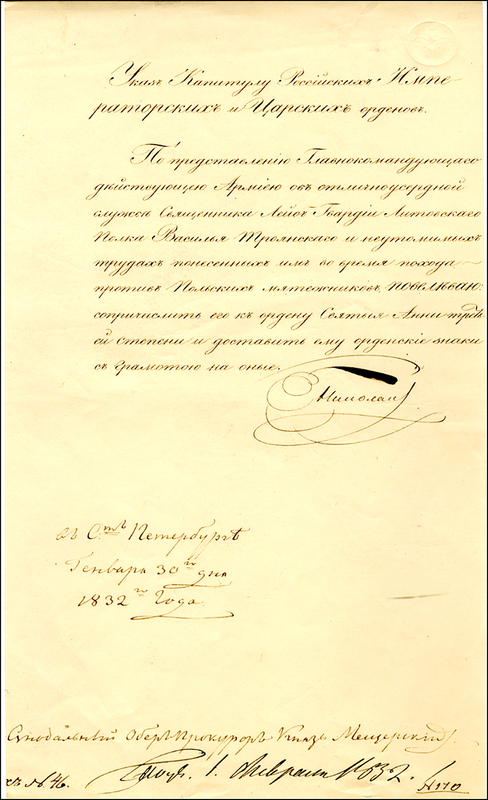 Указъ Капитулу Россійскихъ Импе
раторскихъ и Царскихъ орденовъ.
По представленію Главнокомандующаго
дѣйствующею Арміею объ отличноусердной
службѣ Священника Лейбъ Гвардіи Литовскаго
Полка Василья Троянскаго и неутомимыхъ
трудахъ понесенныхъ имъ во время похода
противъ Польскихъ мятежниковъ, повелѣваю:
сопричислить его къ ордену Святыя Анны треть
ей степени и доставить ему орденскіе знаки
съ грамотою на оные.
Николай
въ С.тъ Петербургѣ
Генваря 30го дня
1832го Года.
Сѵнодальный Оберъ Прокуроръ Князь Мещерскій
Февраля 1832.
№ 46.
№ 170